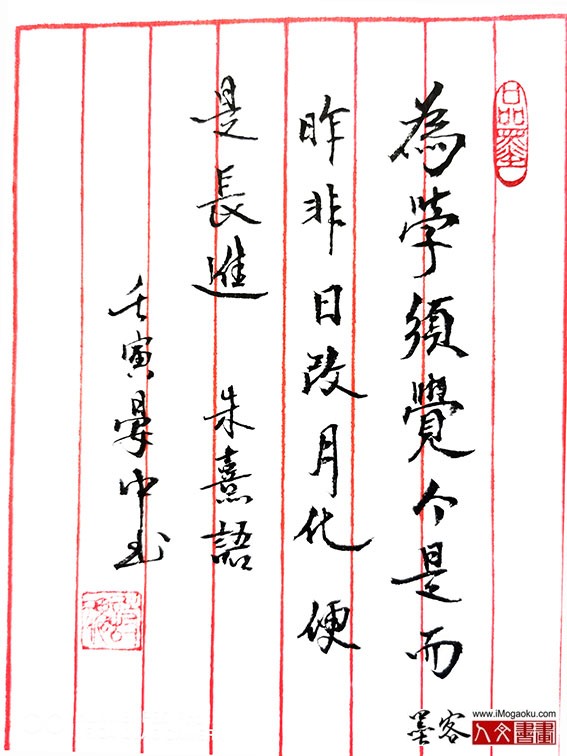 品墨
為學須覺今是而
昨非日改月化便
是長進 朱熹語
壬寅晏中书
墨客
www.iMogaoku.com
人文書畫